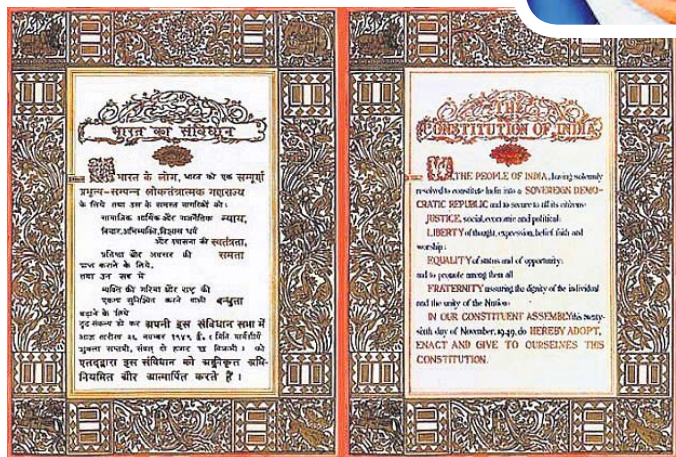 भारत का संविधान
हम भारत के लोग, भारत को एक सम्पूर्ण
प्रभुत्व-सम्पन्न लोकतंत्रात्मक गणराज्य
के लिये तथा उस के समस्त नागरिकों को :
सामाजिक आर्थिक और राजनैतिक न्याय,
विचार,अभिव्यक्ति,विश्वास धर्म
और उपासना की स्वतंत्रता,
प्रतिष्ठा और अवसर की समता
प्राप्त कराने के लिये,
तथा उन सब में
व्यक्ति की गरिमा और राष्ट्र की
एकता सुनिश्चित करने वाली बन्धुता
बढ़ाने के लिये
दृढ़संकल्प हो कर अपनी इस संविधान सभा में
आज तारीख २६ नवम्बर १९४९ ई. ( मिति मार्गशीर्ष
शुक्ला सप्तमी, संवत् दो हजार छः विक्रमी ) को
एतद्द्वारा इस संविधान को अङ्गीकृत अधि-
नियमित और आत्मार्पित करते हैं ।
THE
CONSTITUTION OF INDIA
WE, THE PEOPLE OF INDIA, having solemnly
resolved to constitute India into a SOVEREIGN DEMO-
CRATIC REPUBLIC and to secure to all its citizens:
JUSTICE, social, economic and political;
LIBERTY of thought, expression, belief, faith and
worship;
EQUALITY of status and of opportunity;
and to promote among them all
FRATERNITY assuring the dignity of the individual
and the unity of the Nation;
IN OUR CONSTITUENT ASSEMBLY this twenty-
sixth day of November, 1949, do HEREBY ADOPT,
ENACT AND GIVE TO OURSELVES THIS
CONSTITUTION.